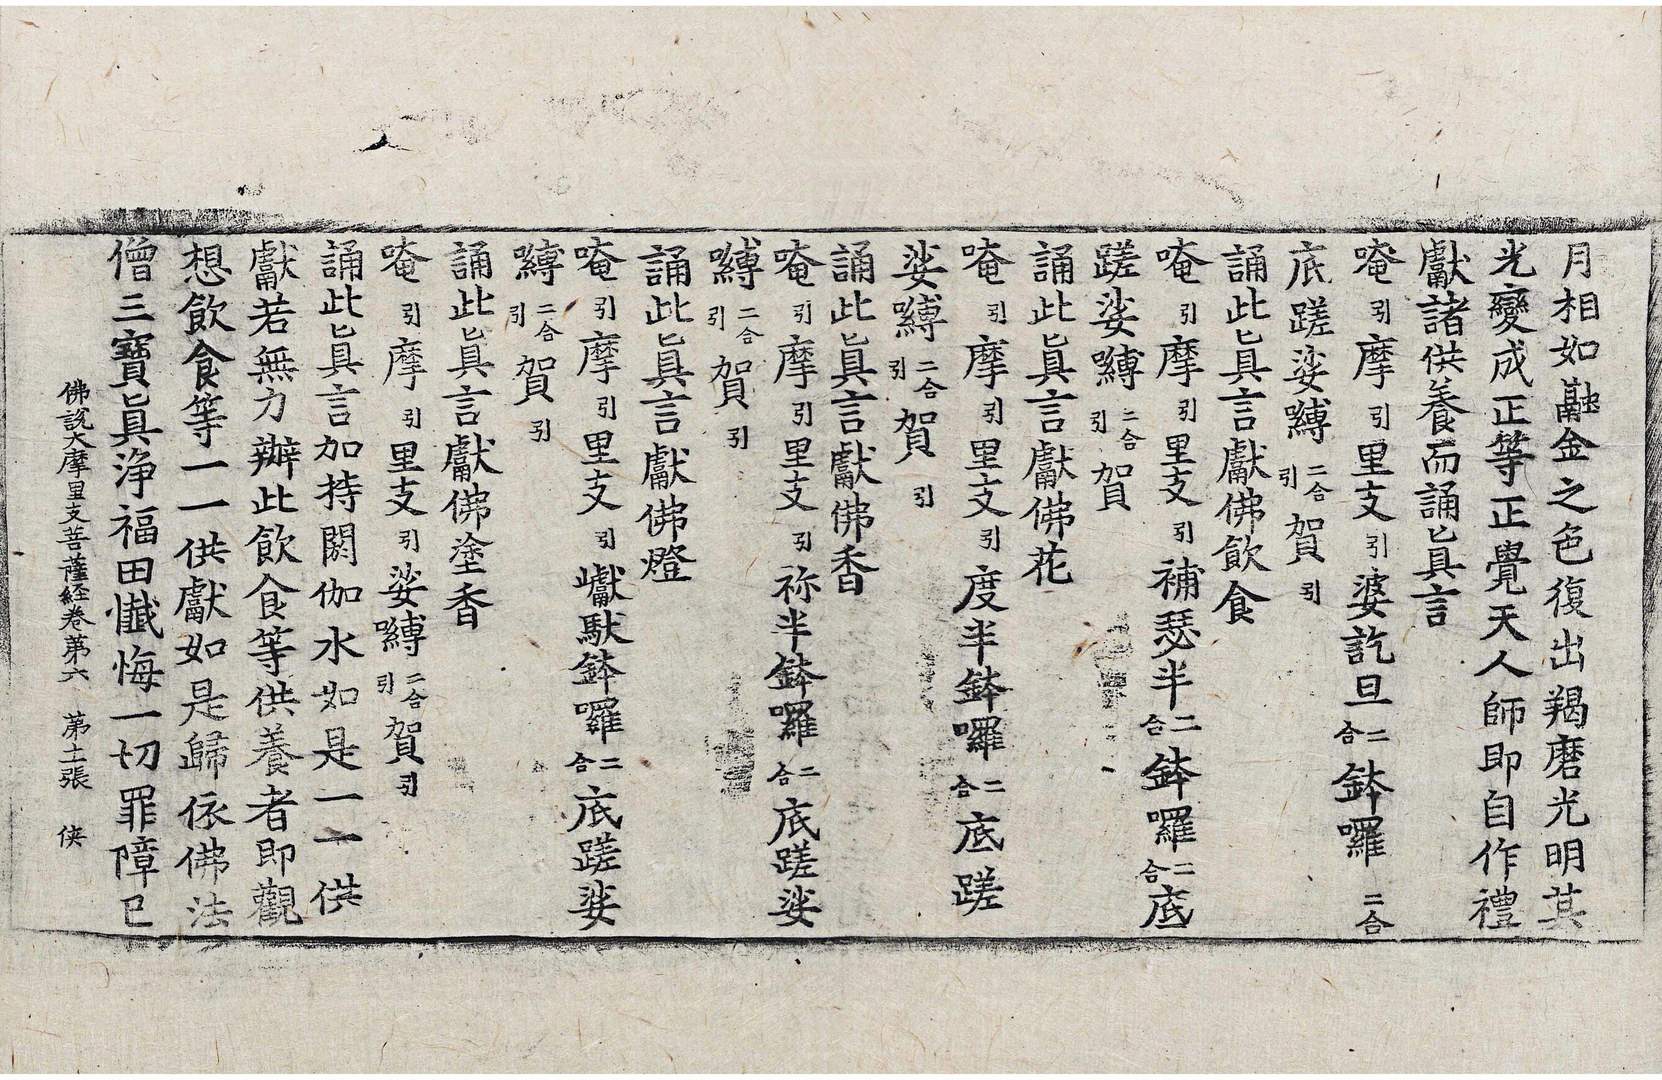 月相如融金之色復出羯磨光明其
光變成正等正覺天人師即自作禮
獻諸供養而誦眞言
唵引摩引里支引婆訖旦二合鉢囉二合
底蹉娑嚩二合引賀引
誦此眞言獻佛飲食
唵引摩引里支引補瑟半二合鉢囉二合底
蹉娑嚩二合引賀
誦此眞言獻佛花
唵引摩引里支引度半鉢囉二合底蹉
娑嚩二合引賀引
誦此眞言獻佛香
唵引摩引里支引祢半鉢囉二合底蹉娑
嚩二合引賀引
誦此眞言獻佛燈
唵引摩引里支引巘馱鉢囉二合底蹉娑
嚩二合引賀引
誦此眞言獻佛塗香
唵引摩引里支引娑嚩二合引賀引
誦此眞言加持閼伽水如是一一供
獻若無力辦此飲食等供養者即觀
想飲食等一一供獻如是歸依佛法
僧三寶眞淨福田懺悔一切罪障已
佛說大摩里支菩薩経卷第六 第十一張 俠